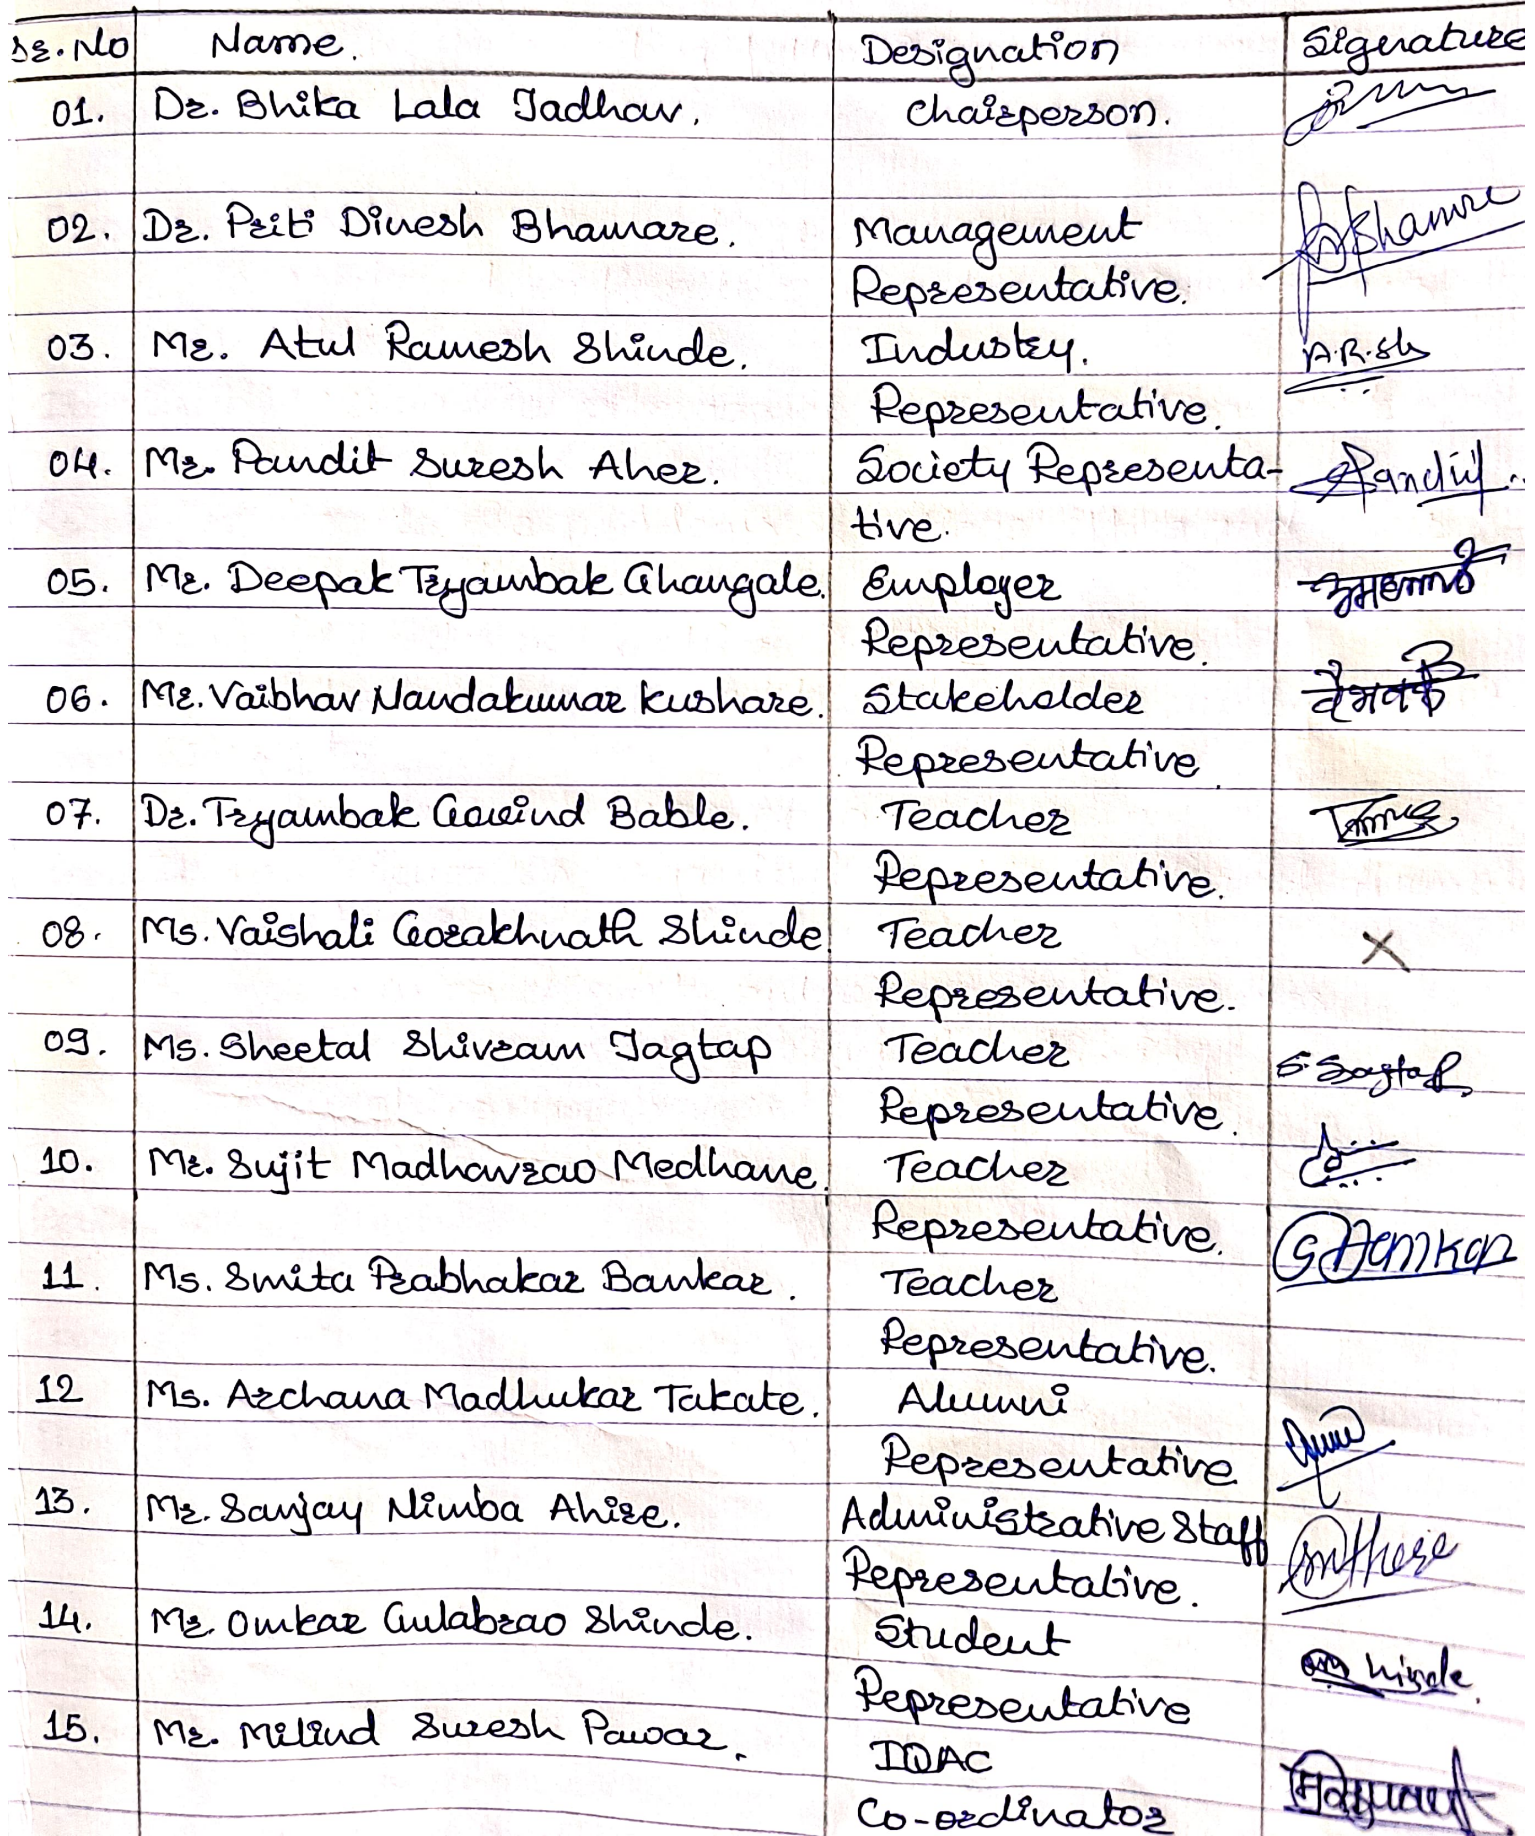 Sr. No Name. Designation Signature
01. Dr. Bhika Lala Jadhav. Chairperson.
02. Dr. Priti Dinesh Bhamare. Management
Representative.
03. Mr. Atul Ramesh Shinde. Industry. A.R.Sh
Representative.
04. Mr. Pandit Suresh Aher. Society Representa- Pandit
tive.
05. Mr. Deepak Tryambak Ghangale. Employer
Representative.
06. Mr. Vaibhav Nandakumar Kushare. Stakeholder
Representative
07. Dr. Tryambak Govind Bable. Teacher
Representative.
08. Ms. Vaishali Gorakhnath Shinde Teacher X
Representative.
09. Ms. Sheetal Shivram Jagtap Teacher
Representative.
10. Mr. Sujit Madhavrao Medhane. Teacher
Representative.
11. Ms. Smita Prabhakar Bankar. Teacher
Representative.
12 Ms. Archana Madhukar Takate. Alumni
Representative
13. Mr. Sanjay Nimba Ahire. Administrative Staff
Representative.
14. Mr. Omkar Gulabrao Shinde. Student
Representative
15. Mr. Milind Suresh Pawar. IQAC
Co-ordinator